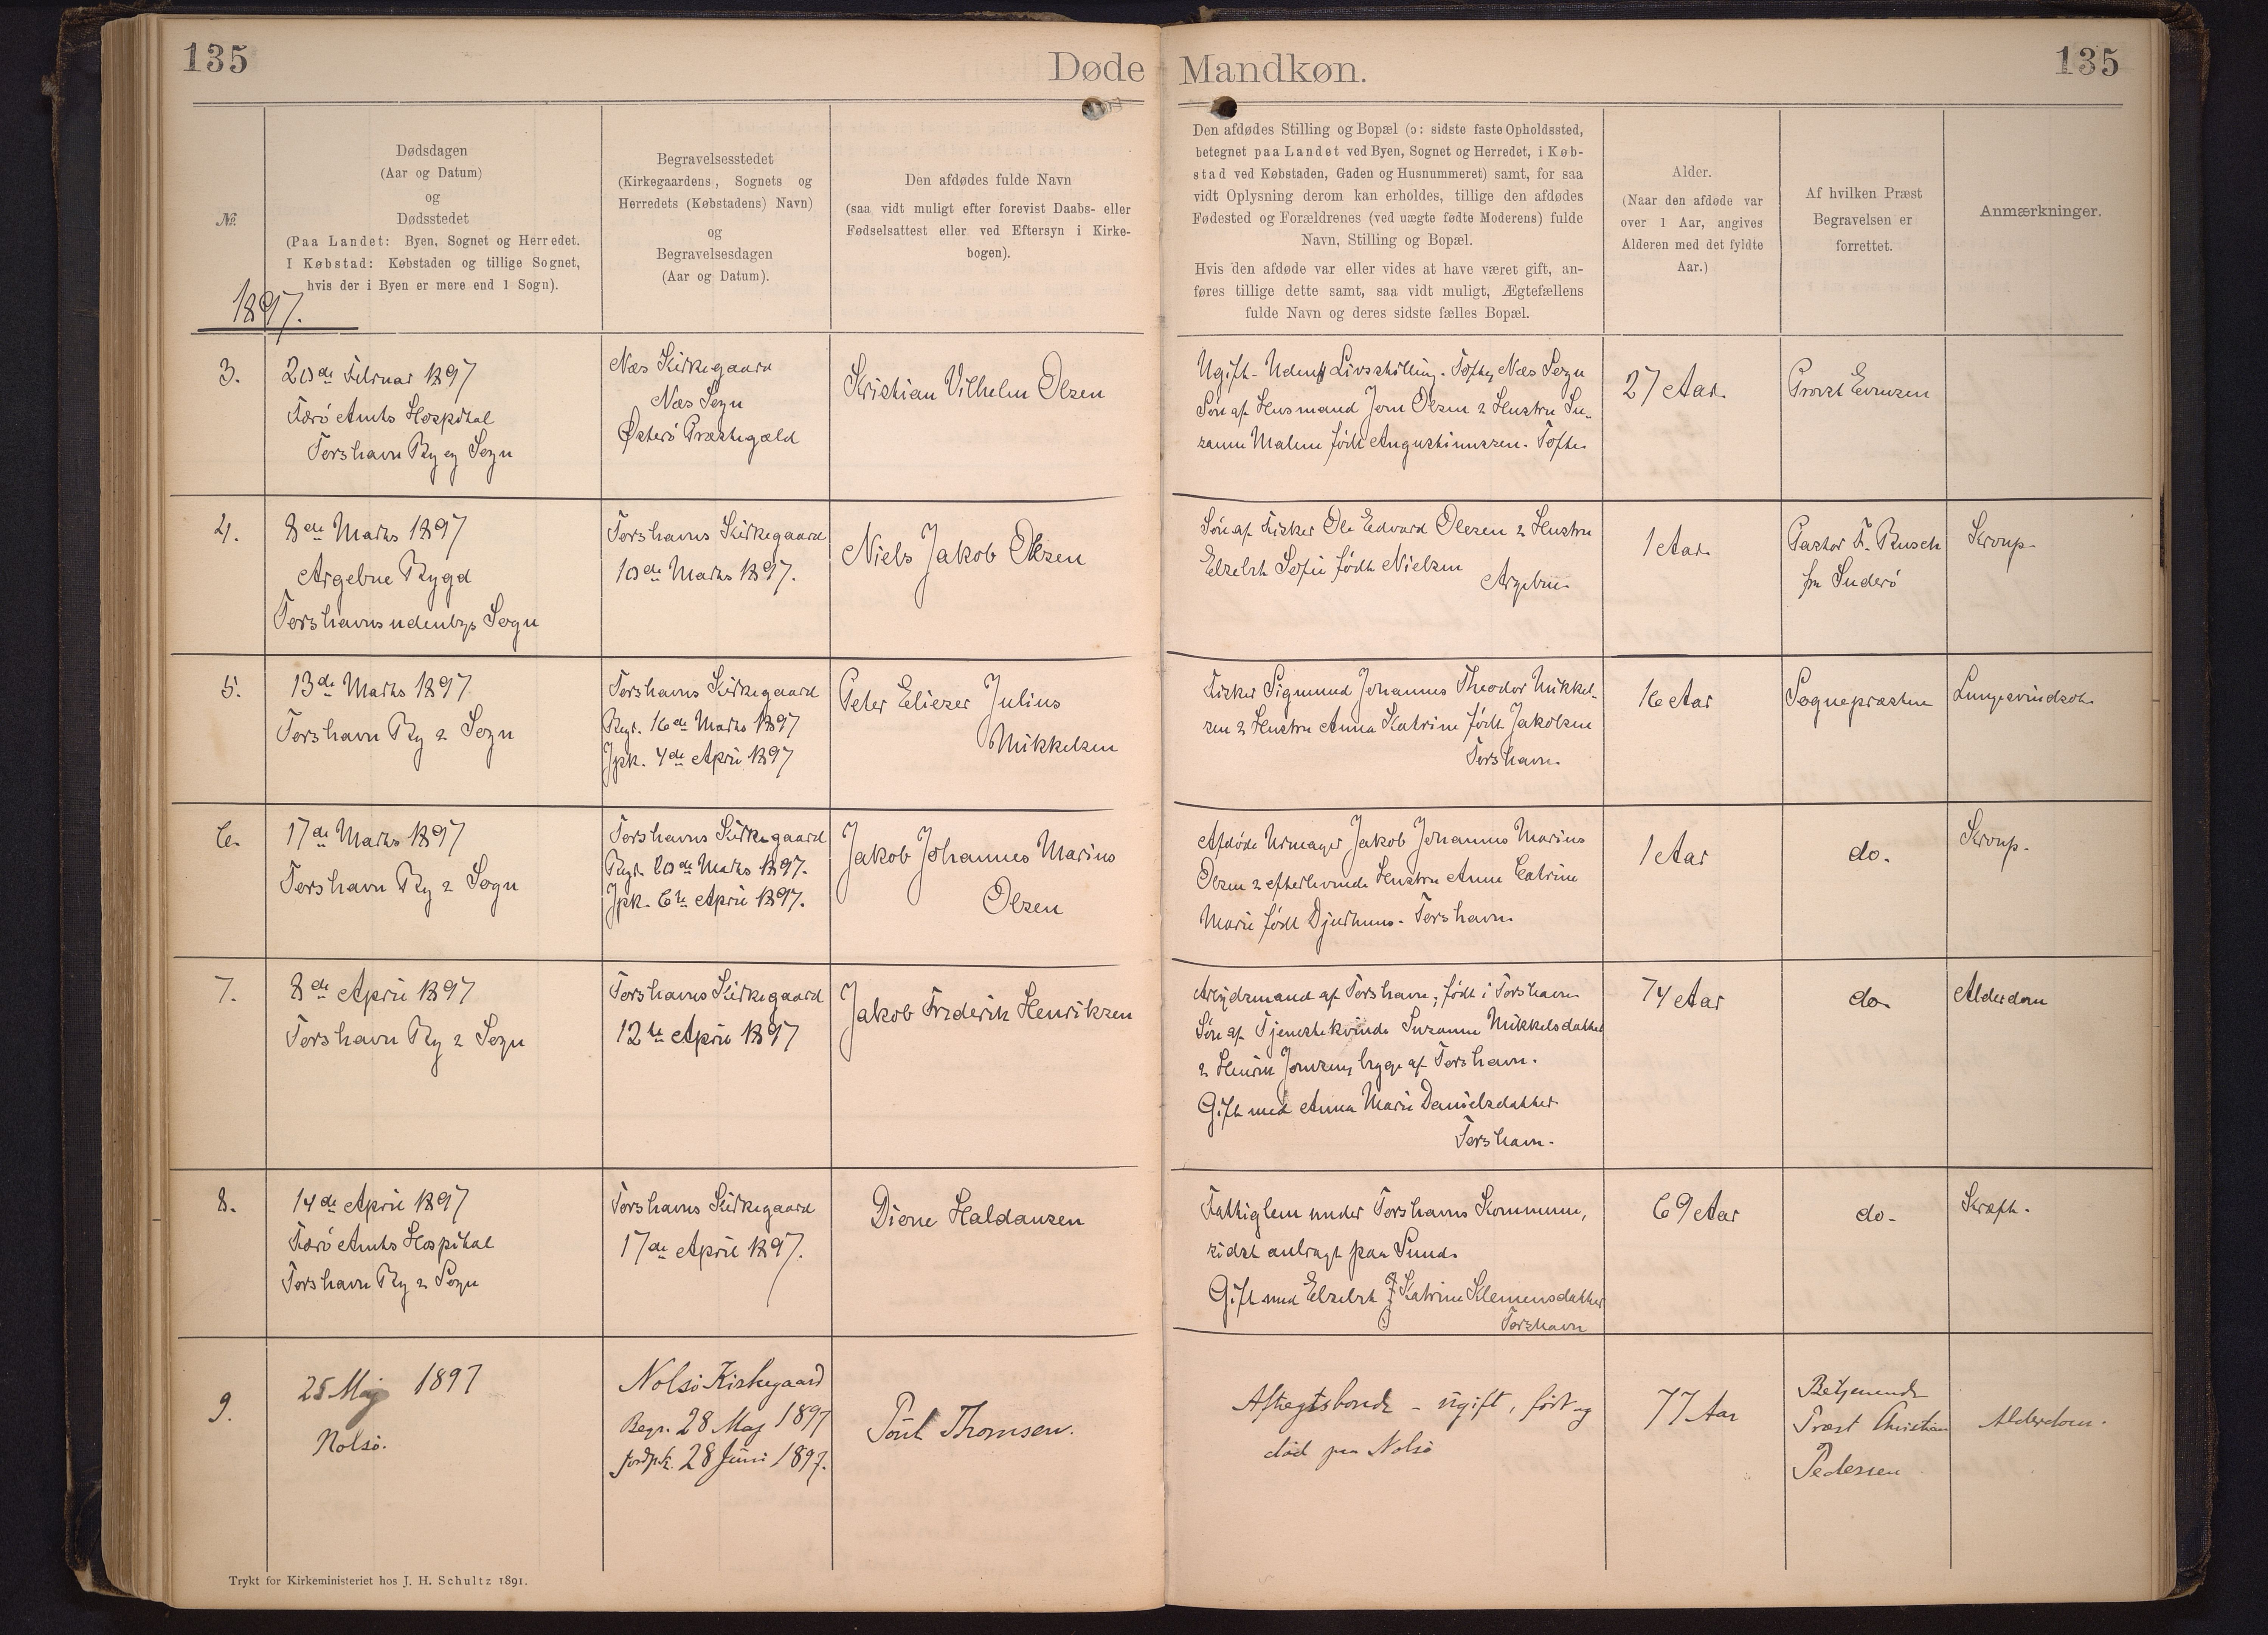 135
Døde
Mandkøn.
135
№
Dødsdagen
(Aar og Datum)
og
Dødsstedet
(Paa Landet: Byen, Sognet og Herredet.
I Købstad: Købstaden og tillige Sognet,
hvis der i Byen er mere end 1 Sogn).
Begravelsesstedet
(Kirkegaardens, Sognets og
Herredets (Købstadens) Navn)
og
Begravelsesdagen
(Aar og Datum).
Den afdødes fulde Navn
(saa vidt muligt efter forevist Daabs- eller
Fødselsattest eller ved Eftersyn i Kirke-
bogen).
Den afdødes Stilling og Bopæl (ɔ: sidste faste Opholdssted,
betegnet paa Landet ved Byen, Sognet og Herredet, i Køb-
stad ved Købstaden, Gaden og Husnummeret) samt, for saa
vidt Oplysning derom kan erholdes, tillige den afdødes
Fødested og Forældrenes (ved uægte fødte Moderens) fulde
Navn, Stilling og Bopæl.
Hvis den afdøde var eller vides at have været gift, an-
føres tillige dette samt, saa vidt muligt, Ægtefællens
fulde Navn og deres sidste fælles Bopæl.
Alder.
(Naar den afdøde var
over 1 Aar, angives
Alderen med det fyldte
Aar.)
Af hvilken Præst
Begravelsen er
forrettet.
Anmærkninger.
1897.
3.
20de Februar 1897
Færö Amts Hospital
Torshavn By og Sogn
Næs Kirkegaard
Næs Sogn
Østerö Præstegæld
Kristian Vilhelm Olsen
Ugift - Uden Livsstilling. Tofte, Næs Sogn
Sön af Husmand Jorn Olsen & Hustru Su-
sanne Malene födt Augustinussen. Tofte.
27 Aar.
Provst Evensen
4.
8de Marts 1897
Argebne Bygd
Torshavns udenbys Sogn
Torshavns Kirkegaard
10de Marts 1897.
Niels Jakob Olesen
Sön af Fisker Ole Edvard Olesen & Hustru
Elsebet Sofie födt Nielsen
Argebne.
1 Aar.
Pastor F. Rusch
fra Suderö
Kroup.
5.
13de Marts 1897.
Torshavn By & Sogn
Torshavns Kirkegaard
Begr. 16de Marts 1897
Jpk. 4de April 1897
Peter Eliezer Julius
Mikkelsen
Fisker Sigmund Johannes Theodor Mikkel-
sen & Hustru Anna Katrine födt Jakobsen
Torshavn.
16 Aar
Sognepræsten
Lungesvindsot.
6.
17de Marts 1897
Torshavn By & Sogn
Torshavns Kirkegaard
Begr. 20de Marts 1897.
Jpk. 6te April 1897.
Jakob Johannes Marius
Olsen
Afdöde Urmager Jakob Johannes Marius
Olsen & efterlevende Hustru Anne Catrine
Marie födt Djurhuus. Torshavn.
1 Aar
do.
Kroup.
7.
8de April 1897
Torshavn By & Sogn
Torshavns Kirkegaard
12te April 1897
Jakob Frederik Henriksen
Arbejdsmand af Torshavn; födt i Torshavn
Sön af Tjenestekvinde Susanne Mikkelsdatter
& Henrik Joensen, begge af Torshavn.
Gift med Anna Marie Danielsdatter
Torshavn.
74 Aar
do.
Alderdom
8.
14de April 1897
Færö Amts Hospital
Torshavn By & Sogn
Torshavns Kirkegaard
17de April 1897.
Dione Haldansen
Fattiglem under Torshavns Kommune,
sidst anbragt paa Sund.
Gift med Elsebet Katrine Klemensdatter
Torshavn
69 Aar
do.
Kræft.
9.
25 Maj 1897
Nolsö.
Nolsö Kirkegaard
Begr. 28 Maj 1897
Jordpk. 28 Juni 1897.
Poul Thomsen.
Aftægtsbonde - ugift, född og
död paa Nolsö
77 Aar
Betjenende
Præst Christian
Pedersen
Alderdom.
Trykt for Kirkeministeriet hos J. H. Schultz 1891.